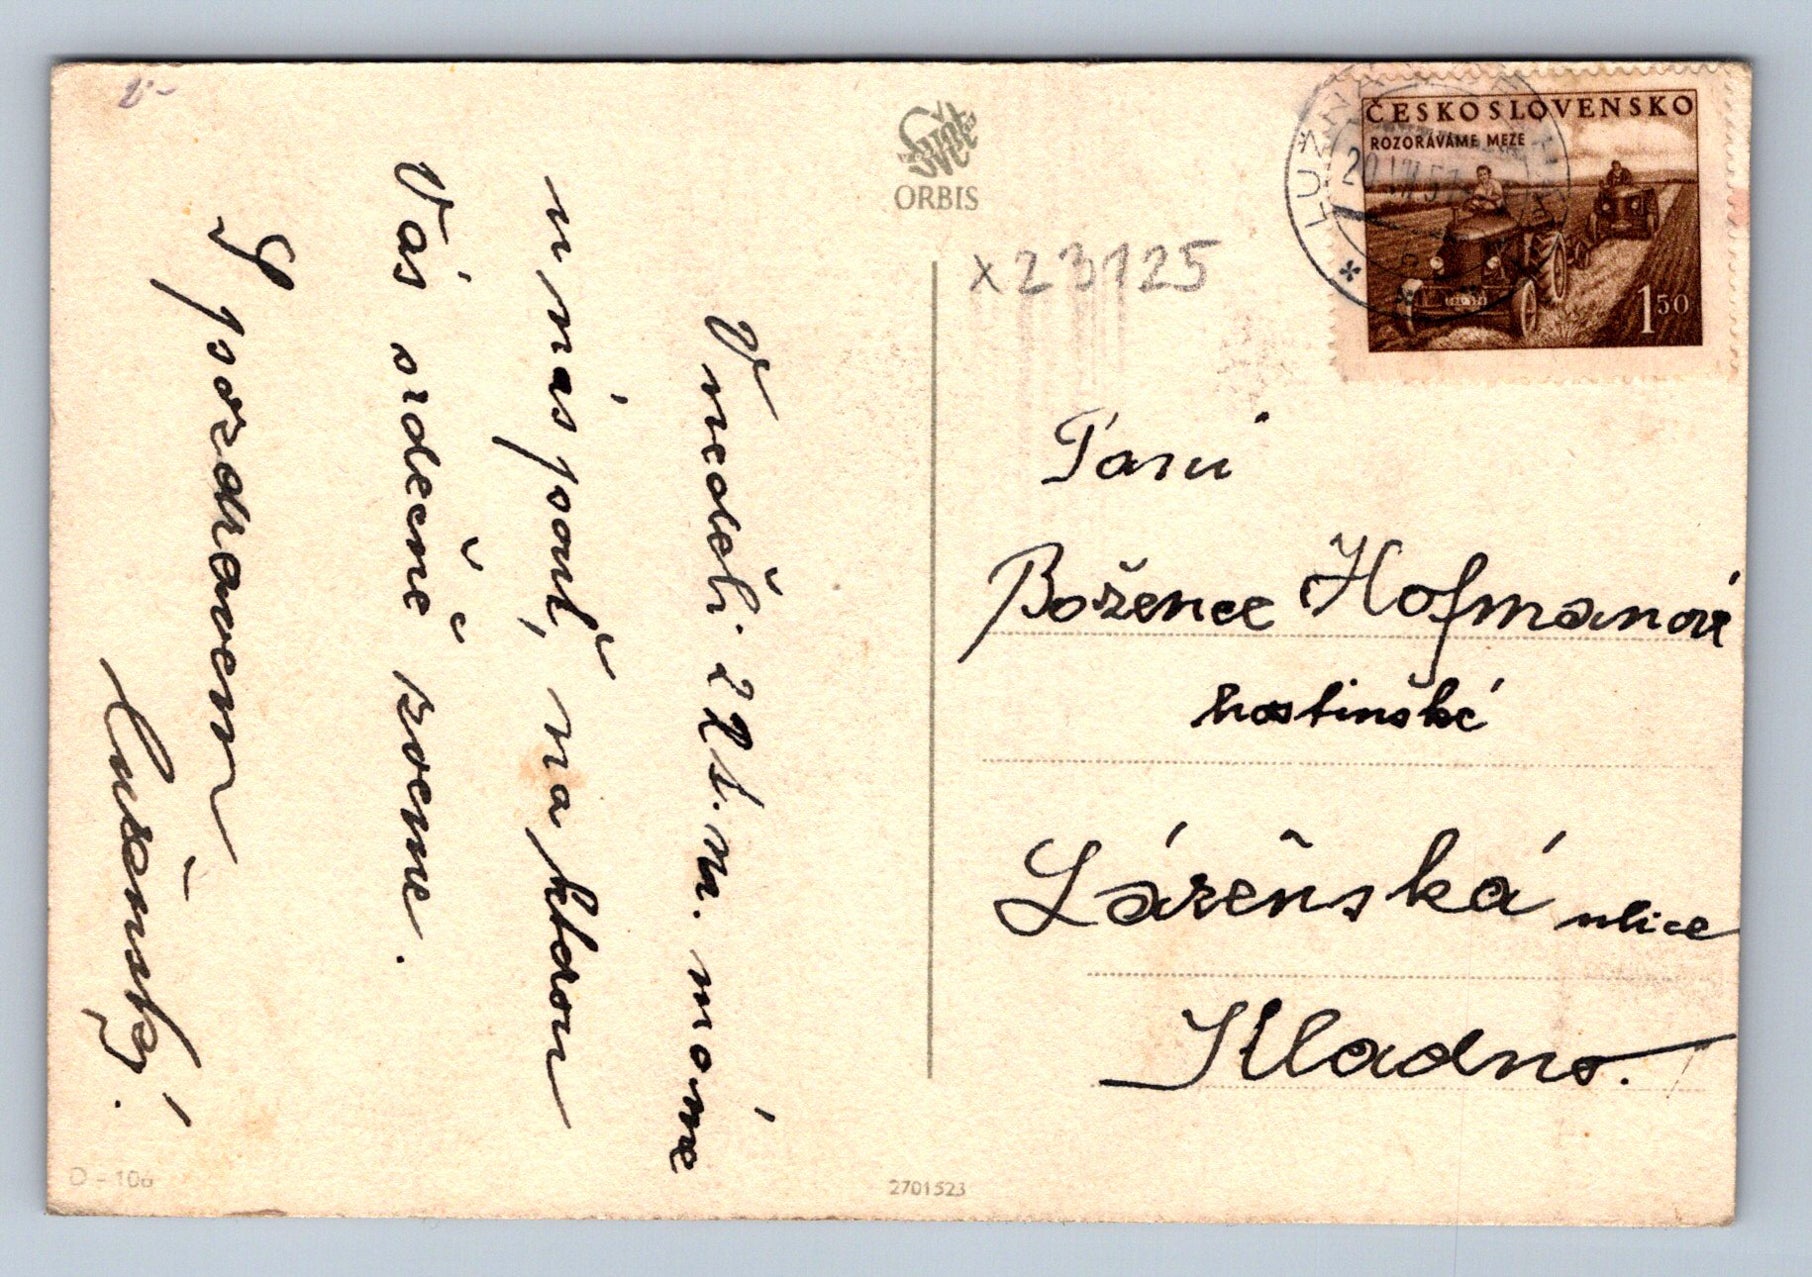 V neděli 22 t. m. máme
u nás pouť, na kterou
Vás srdečně zveme.
S pozdravem
Lužanský.
ORBIS
x23125
ČESKOSLOVENSKO
ROZORÁVÁME MEZE
1 50
LUŽNÁ
Paní
Božence Hofmanové
hostinské
Lázeňská ulice
Kladno.
D - 106
2701523